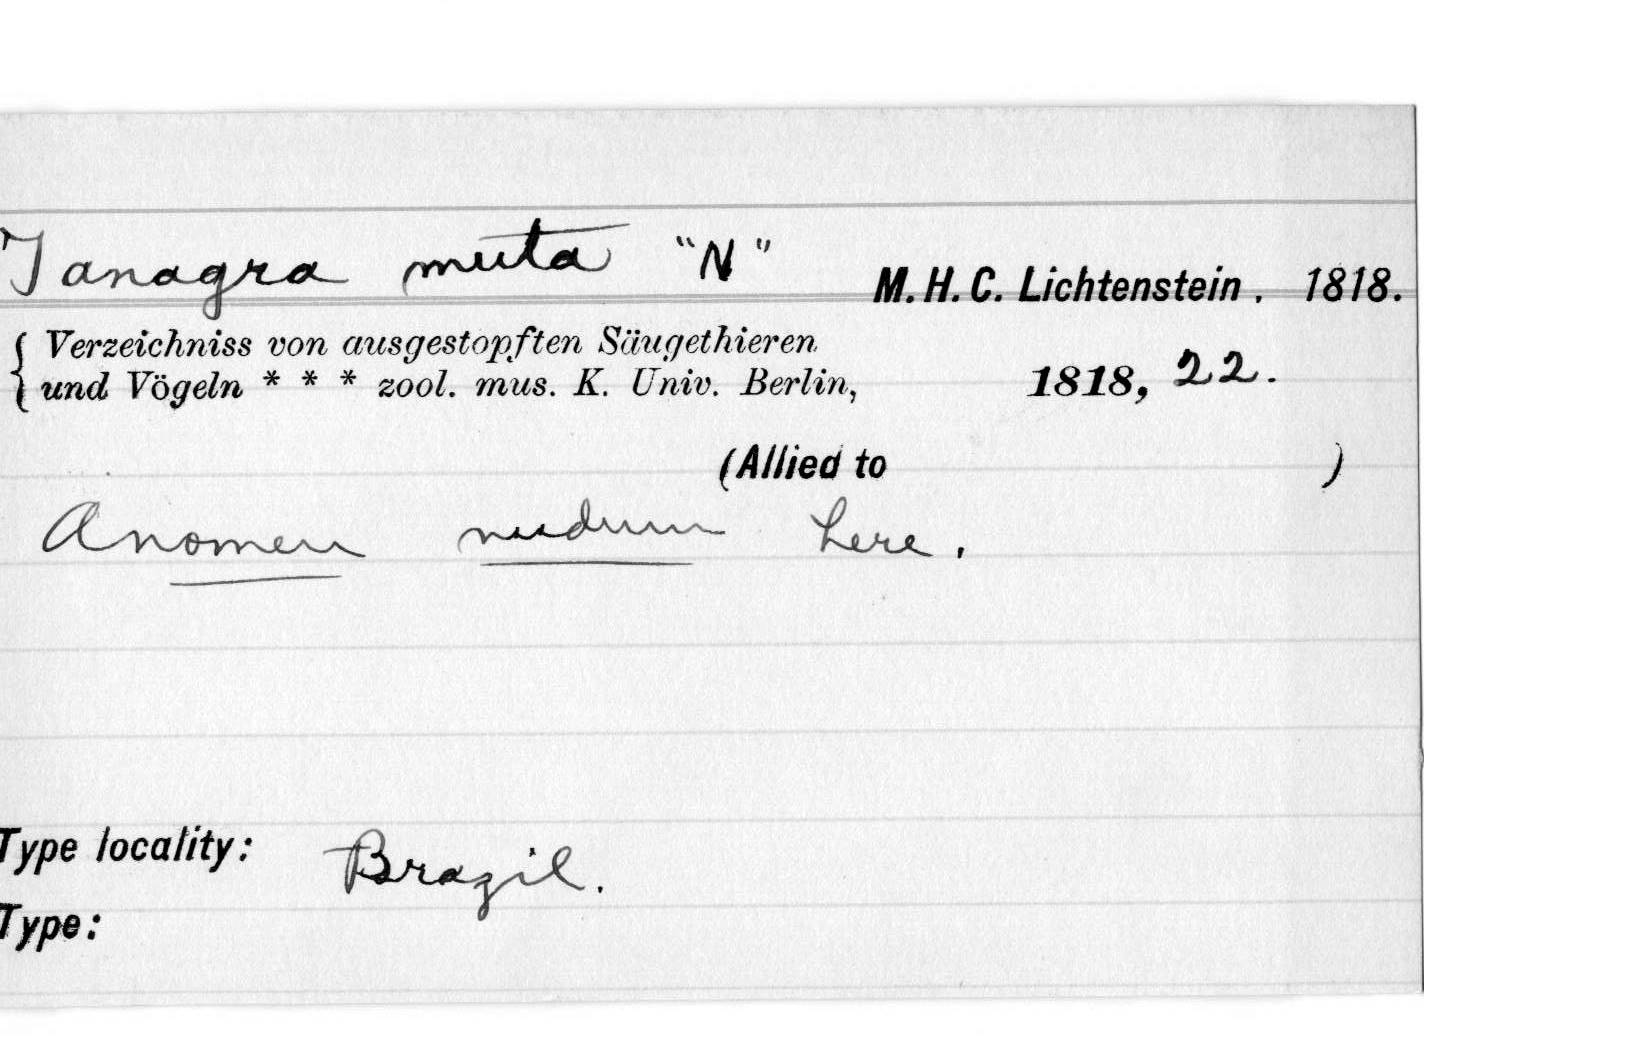 Tanagra muta "N" M. H. C. Lichtenstein. 1818.
Verzeichniss von ausgestopften Säugethieren
und Vögeln * * * zool. mus. K. Univ. Berlin, 1818, 22.
(Allied to )
A nomen nudum here.
Type locality: Brazil.
Type: